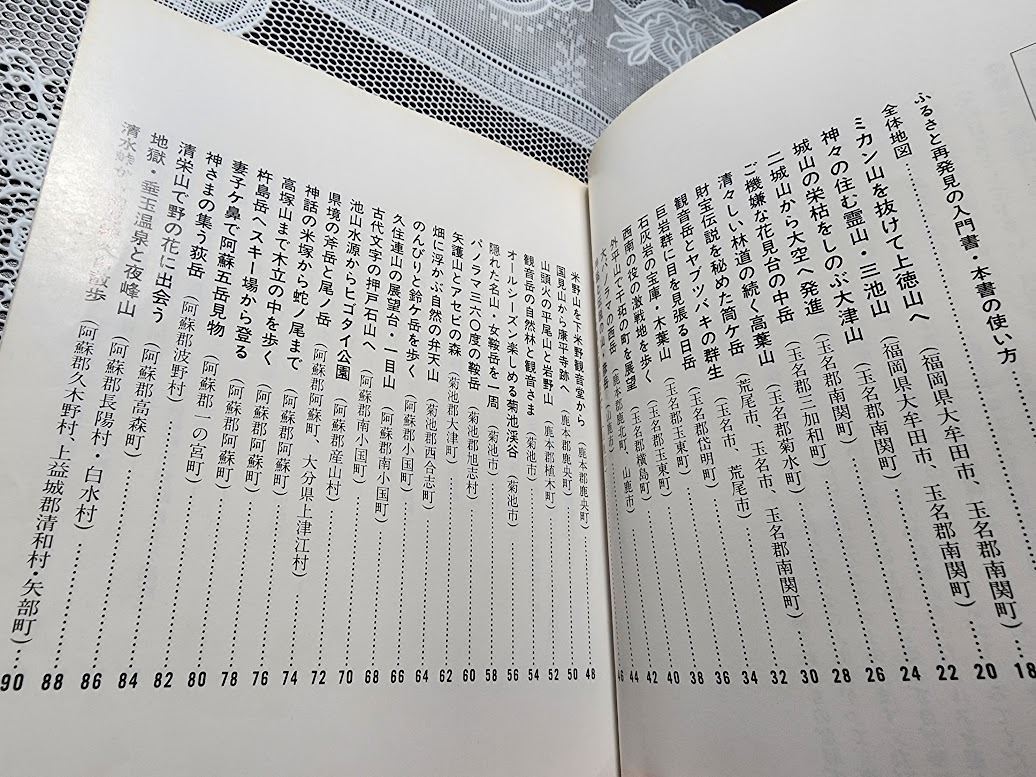 ふるさと再発見の入門書・本書の使い方
全体地図……18
ミカン山を抜けて上徳山へ（福岡県大牟田市、玉名郡南関町）……20
神々の住む霊山・三池山（福岡県大牟田市、玉名郡南関町）……22
城山の栄枯をしのぶ大津山（玉名郡南関町）……24
二城山から大空へ発進（玉名郡南関町）……26
ご機嫌な花見台の中岳（玉名郡三加和町）……28
清々しい林道の続く高葉山（玉名郡菊水町）……30
財宝伝説を秘めた筒ケ岳（荒尾市、玉名市、玉名郡南関町）……32
観音岳とヤブツバキの群生（玉名市、荒尾市）……34
巨岩群に目を見張る日岳（玉名郡岱明町）……36
石灰岩の宝庫・木葉山（玉名郡玉東町）……38
西南の役の激戦地を歩く（玉名郡玉東町）……40
外平山で干拓の町を展望（玉名郡横島町）……42
大パノラマの西岳（鹿本郡鹿北町、山鹿市）……44
（山鹿市）……46
米野山を下米野観音堂から（鹿本郡鹿央町）……48
国見山から康平寺跡へ（鹿本郡鹿央町）……50
山頭火の平尾山と岩野山（鹿本郡植木町）……52
観音岳の自然林と観音さま（菊池市）……54
オールシーズン楽しめる菊池渓谷（菊池市）……56
隠れた名山・女鞍岳を一周（菊池市）……58
パノラマ三六〇度の鞍岳（菊池郡旭志村）……60
矢護山とアセビの森（菊池郡大津町）……62
畑に浮かぶ自然の弁天山（菊池郡西合志町）……64
のんびりと鈴ケ岳を歩く（阿蘇郡小国町）……66
久住連山の展望台・一目山（阿蘇郡南小国町）……68
古代文字の押戸石山へ（阿蘇郡南小国町）……70
池山水源からヒゴタイ公園（阿蘇郡産山村）……72
県境の斧岳と尾ノ岳（阿蘇郡阿蘇町、大分県上津江村）……74
神話の米塚から蛇ノ尾まで（阿蘇郡阿蘇町）……76
高塚山まで木立の中を歩く（阿蘇郡阿蘇町）……78
杵島岳へスキー場から登る（阿蘇郡阿蘇町）……80
妻子ケ鼻で阿蘇五岳見物（阿蘇郡一の宮町）……82
神さまの集う荻岳（阿蘇郡波野村）……84
清栄山で野の花に出会う（阿蘇郡高森町）……86
地獄・垂玉温泉と夜峰山（阿蘇郡長陽村、白水村）……88
清水峠 散歩（阿蘇郡久木野村、上益城郡清和村・矢部町）……90